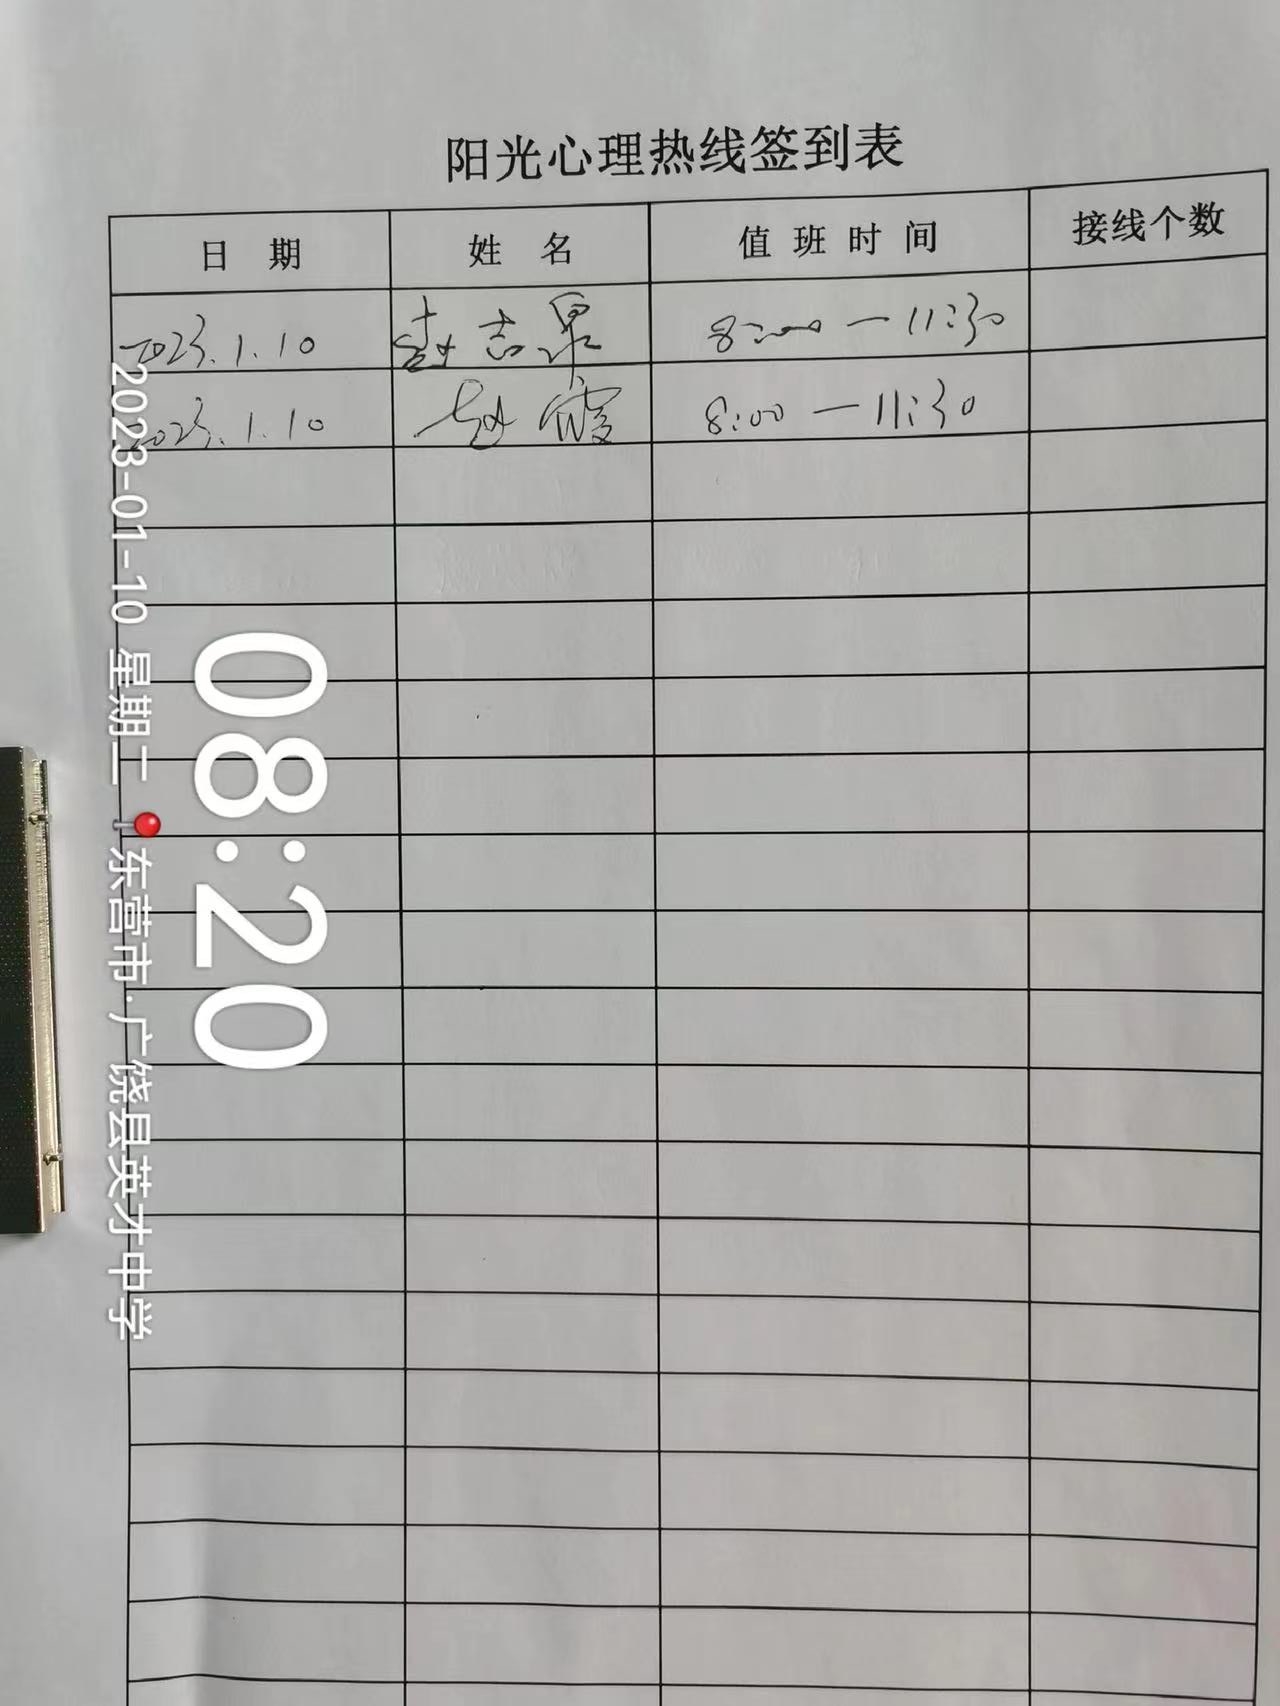 阳光心理热线签到表
日期 姓名 值班时间 接线个数
2023.1.10 8:00—11:30
2023.1.10 赵霞 8:00—11:30
2023-01-10 星期二 东营市·广饶县英才中学
08:20